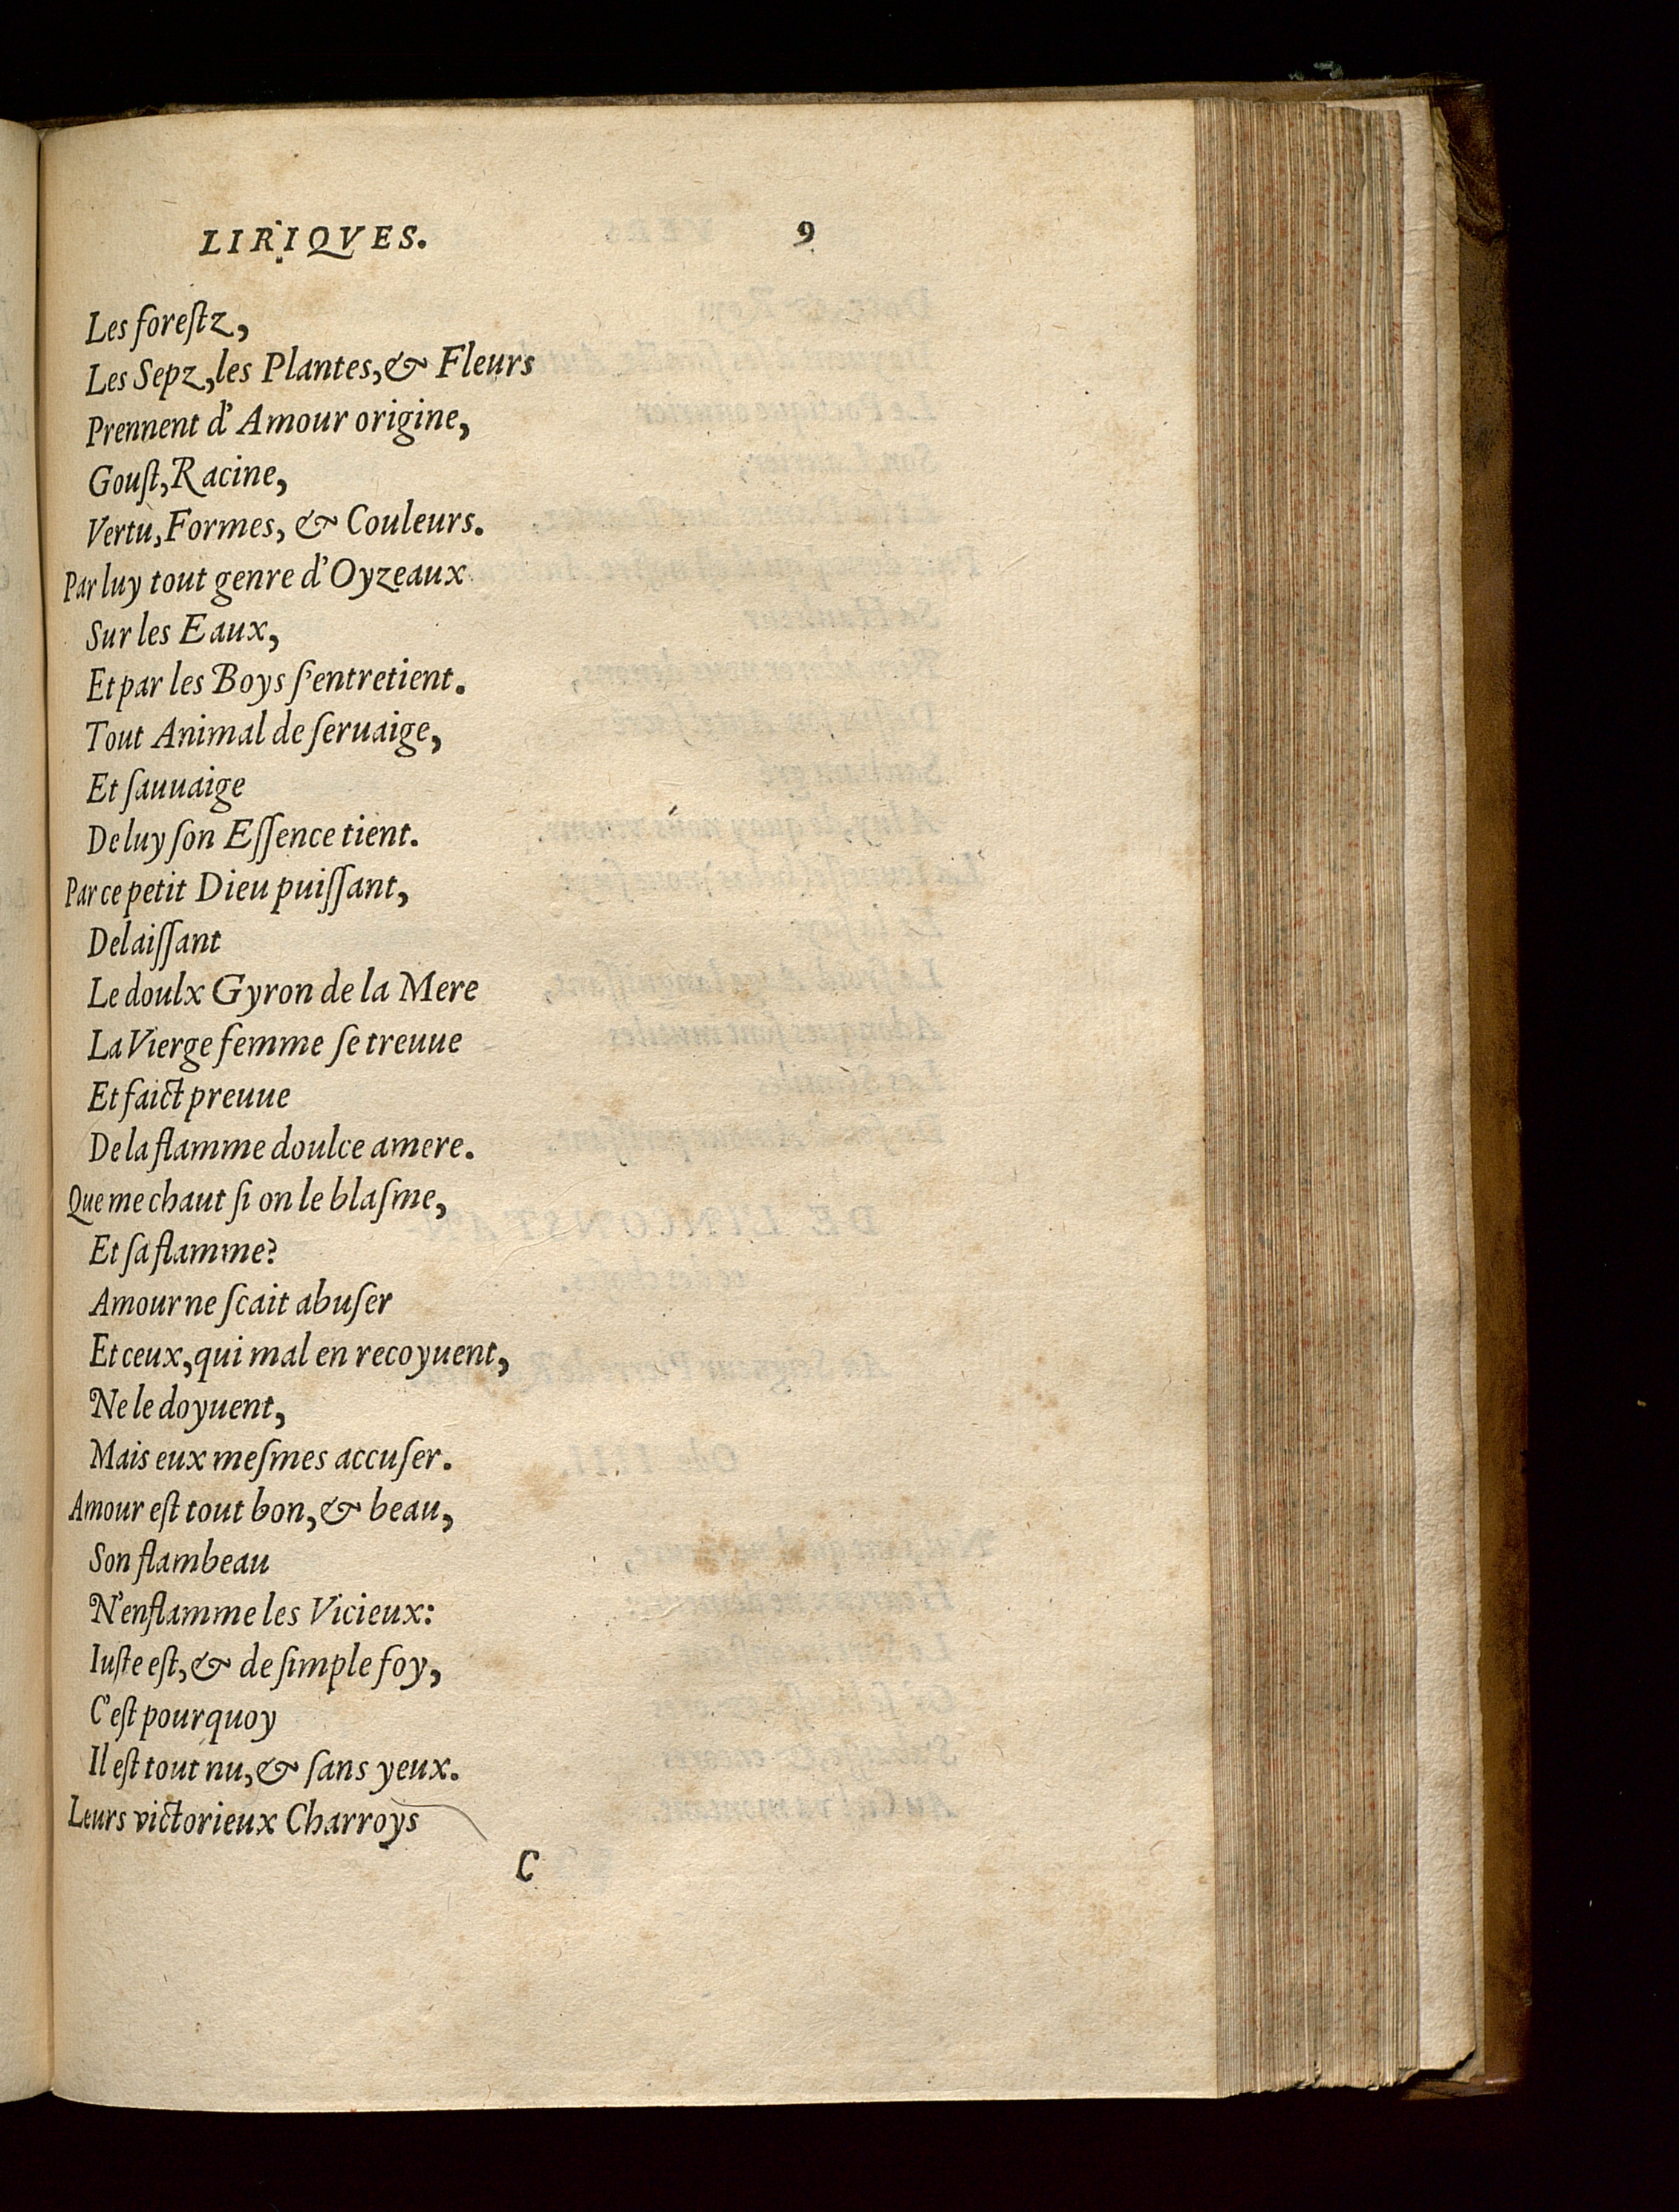 LIRIQVES. 9
Les foreſtz,
Les Sepz, les Plantes, & Fleurs
Prennent d'Amour origine,
Gouſt, Racine,
Vertu, Formes, & Couleurs.
Par luy tout genre d'Oyzeaux
Sur les Eaux,
Et par les Boys ſ'entretient.
Tout Animal de ſeruaige,
Et ſauuaige
De luy ſon Eſſence tient.
Par ce petit Dieu puiſſant,
Delaiſſant
Le doulx Gyron de la Mere
La Vierge femme ſe treuue
Et faict preuue
De la flamme doulce amere.
Que me chaut ſi on le blaſme,
Et ſa flamme?
Amour ne ſcait abuſer
Et ceux, qui mal en recoyuent,
Ne le doyuent,
Mais eux meſmes accuſer.
Amour eſt tout bon, & beau,
Son flambeau
N'enflamme les Vicieux:
Iuſte eſt, & de ſimple foy,
C'eſt pourquoy
Il eſt tout nu, & ſans yeux.
Leurs victorieux Charroys
C